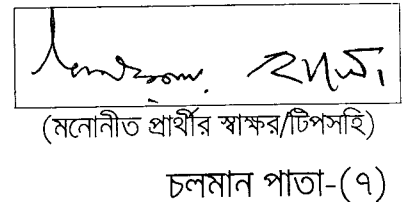 (মনোনীত প্রার্থীর স্বাক্ষর/টিপসহি)
চলমান পাতা-(৭)